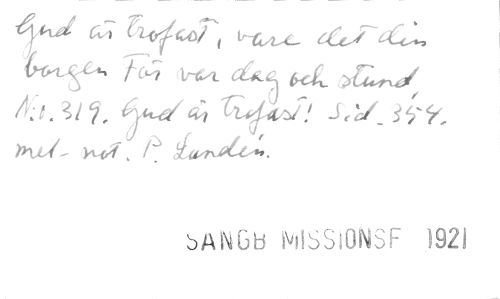 Gud är trofast, vare det din
borgen För var dag och stund,
N:o. 319. Gud är trofast! Sid. 354.
mel- not. P. Lundén.
SANGB MISSIONSF 1921